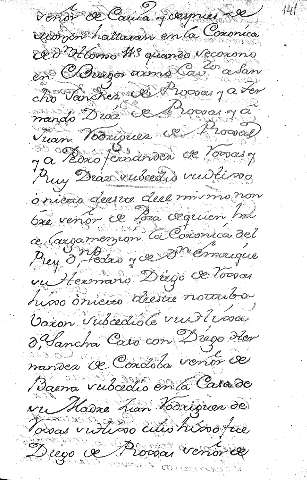 señor de Cavia y despues se
hallaran en la Coronica
de Dn Alonso quando se corono
en Burgos armo Cavros a San
cho Sanchez de Roxas y a Fer
nando Diaz de Roxas y a
Juan Rodriguez de Roxas
y a Pedro Fernandez de Roxas y
Ruy Diaz subcedio su hixo
deste del mismo nom
bre señor de Poza de quien ha
ce largamencion la Coronica del
Rey Dn Pedro y de Dn Enrrique
su Hermano Diego de Roxas
hixo deste no tubo
baron subcediole su Hixa
Da Sancha Caso con Diego Her
nandez de Cordoba señor de
Baena subcedio en la Casa de
su Madre Juan Rodriguez de
Roxas su hixo cuio hixo fue
Diego de Roxas señor de